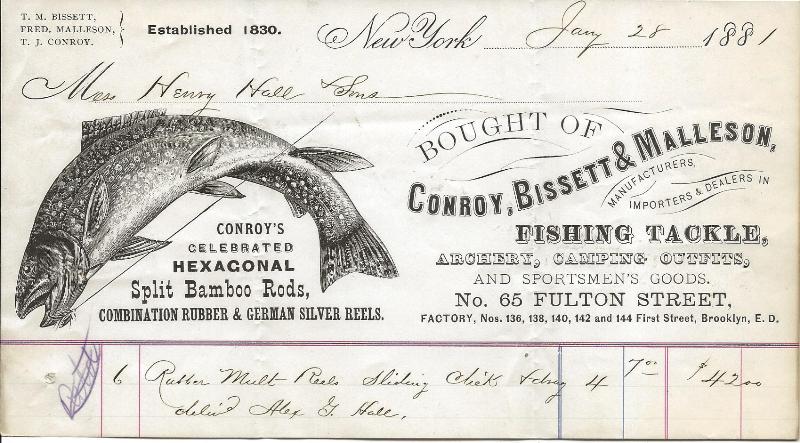 T. M. BISSETT,
FRED. MALLESON,
T. J. CONROY.
Established 1830.
New York Jany 28 1881
Mess Henry Hall Sons
BOUGHT OF
CONROY, BISSETT & MALLESON,
MANUFACTURERS,
IMPORTERS & DEALERS IN
FISHING TACKLE,
ARCHERY, CAMPING OUTFITS,
AND SPORTSMEN'S GOODS.
No. 65 FULTON STREET,
FACTORY, Nos. 136, 138, 140, 142 and 144 First Street, Brooklyn, E. D.
CONROY'S
CELEBRATED
HEXAGONAL
Split Bamboo Rods,
COMBINATION RUBBER & GERMAN SILVER REELS.
6 Rubber Mult Reels Sliding Click 4 7 00 $ 42 00
deliv'd Alex G. Hall,